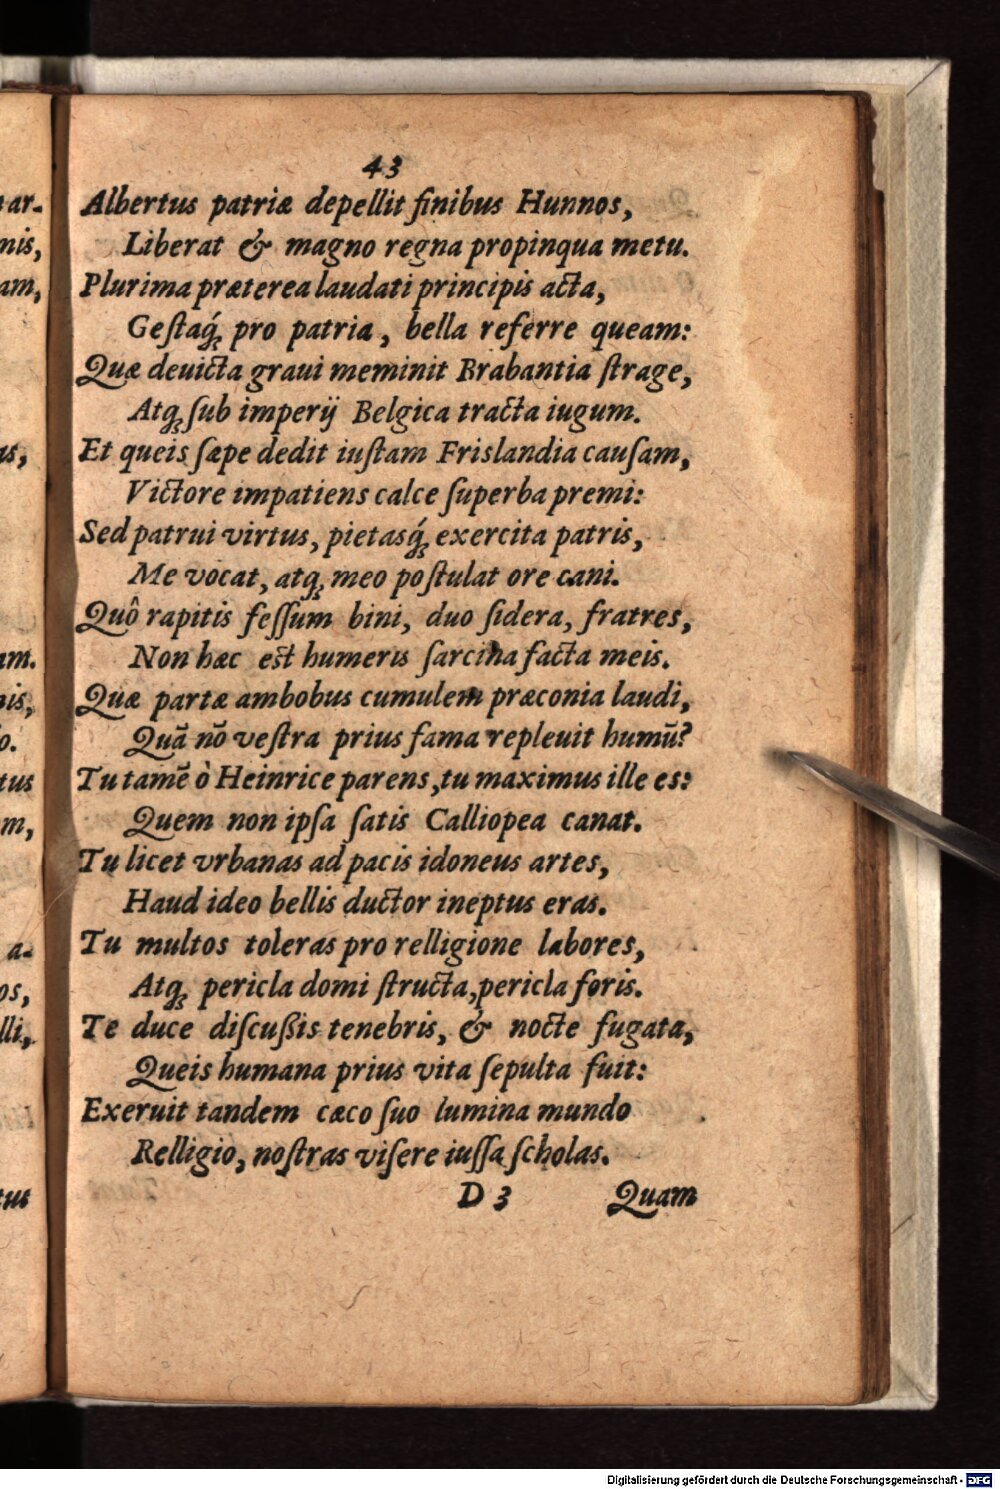 43
Albertus patriæ depellit finibus Hunnos,
Liberat & magno regna propinqua metu.
Plurima præterea laudati principis acta,
Geſtaq́; pro patria, bella referre queam:
Quæ deuicta graui meminit Brabantia ſtrage,
Atq; ſub imperij Belgica tracta iugum.
Et queis ſæpe dedit iuſtam Frislandia cauſam,
Victore impatiens calce ſuperba premi:
Sed patrui virtus, pietasq́; exercita patris,
Me vocat, atq; meo poſtulat ore cani.
Quô rapitis feſſum bini, duo ſidera, fratres,
Non hæc est humeris ſarcina facta meis.
Quæ partæ ambobus cumulem præconia laudi,
Quã nõ veſtra prius fama repleuit humũ?
Tu tamẽ ò Heinrice parens, tu maximus ille es:
Quem non ipſa ſatis Calliopea canat.
Tu licet vrbanas ad pacis idoneus artes,
Haud ideo bellis ductor ineptus eras.
Tu multos toleras pro relligione labores,
Atq; pericla domi ſtructa, pericla foris.
Te duce diſcuſsis tenebris, & nocte fugata,
Queis humana prius vita ſepulta fuit:
Exeruit tandem cæco ſuo lumina mundo
Relligio, noſtras viſere iuſſa ſcholas.
D 3 Quam
ar.
nis,
am,
us,
am.
nis,
o.
tus
m,
a-
os,
lli,
tus
Digitalisierung gefördert durch die Deutsche Forschungsgemeinschaft - DFG